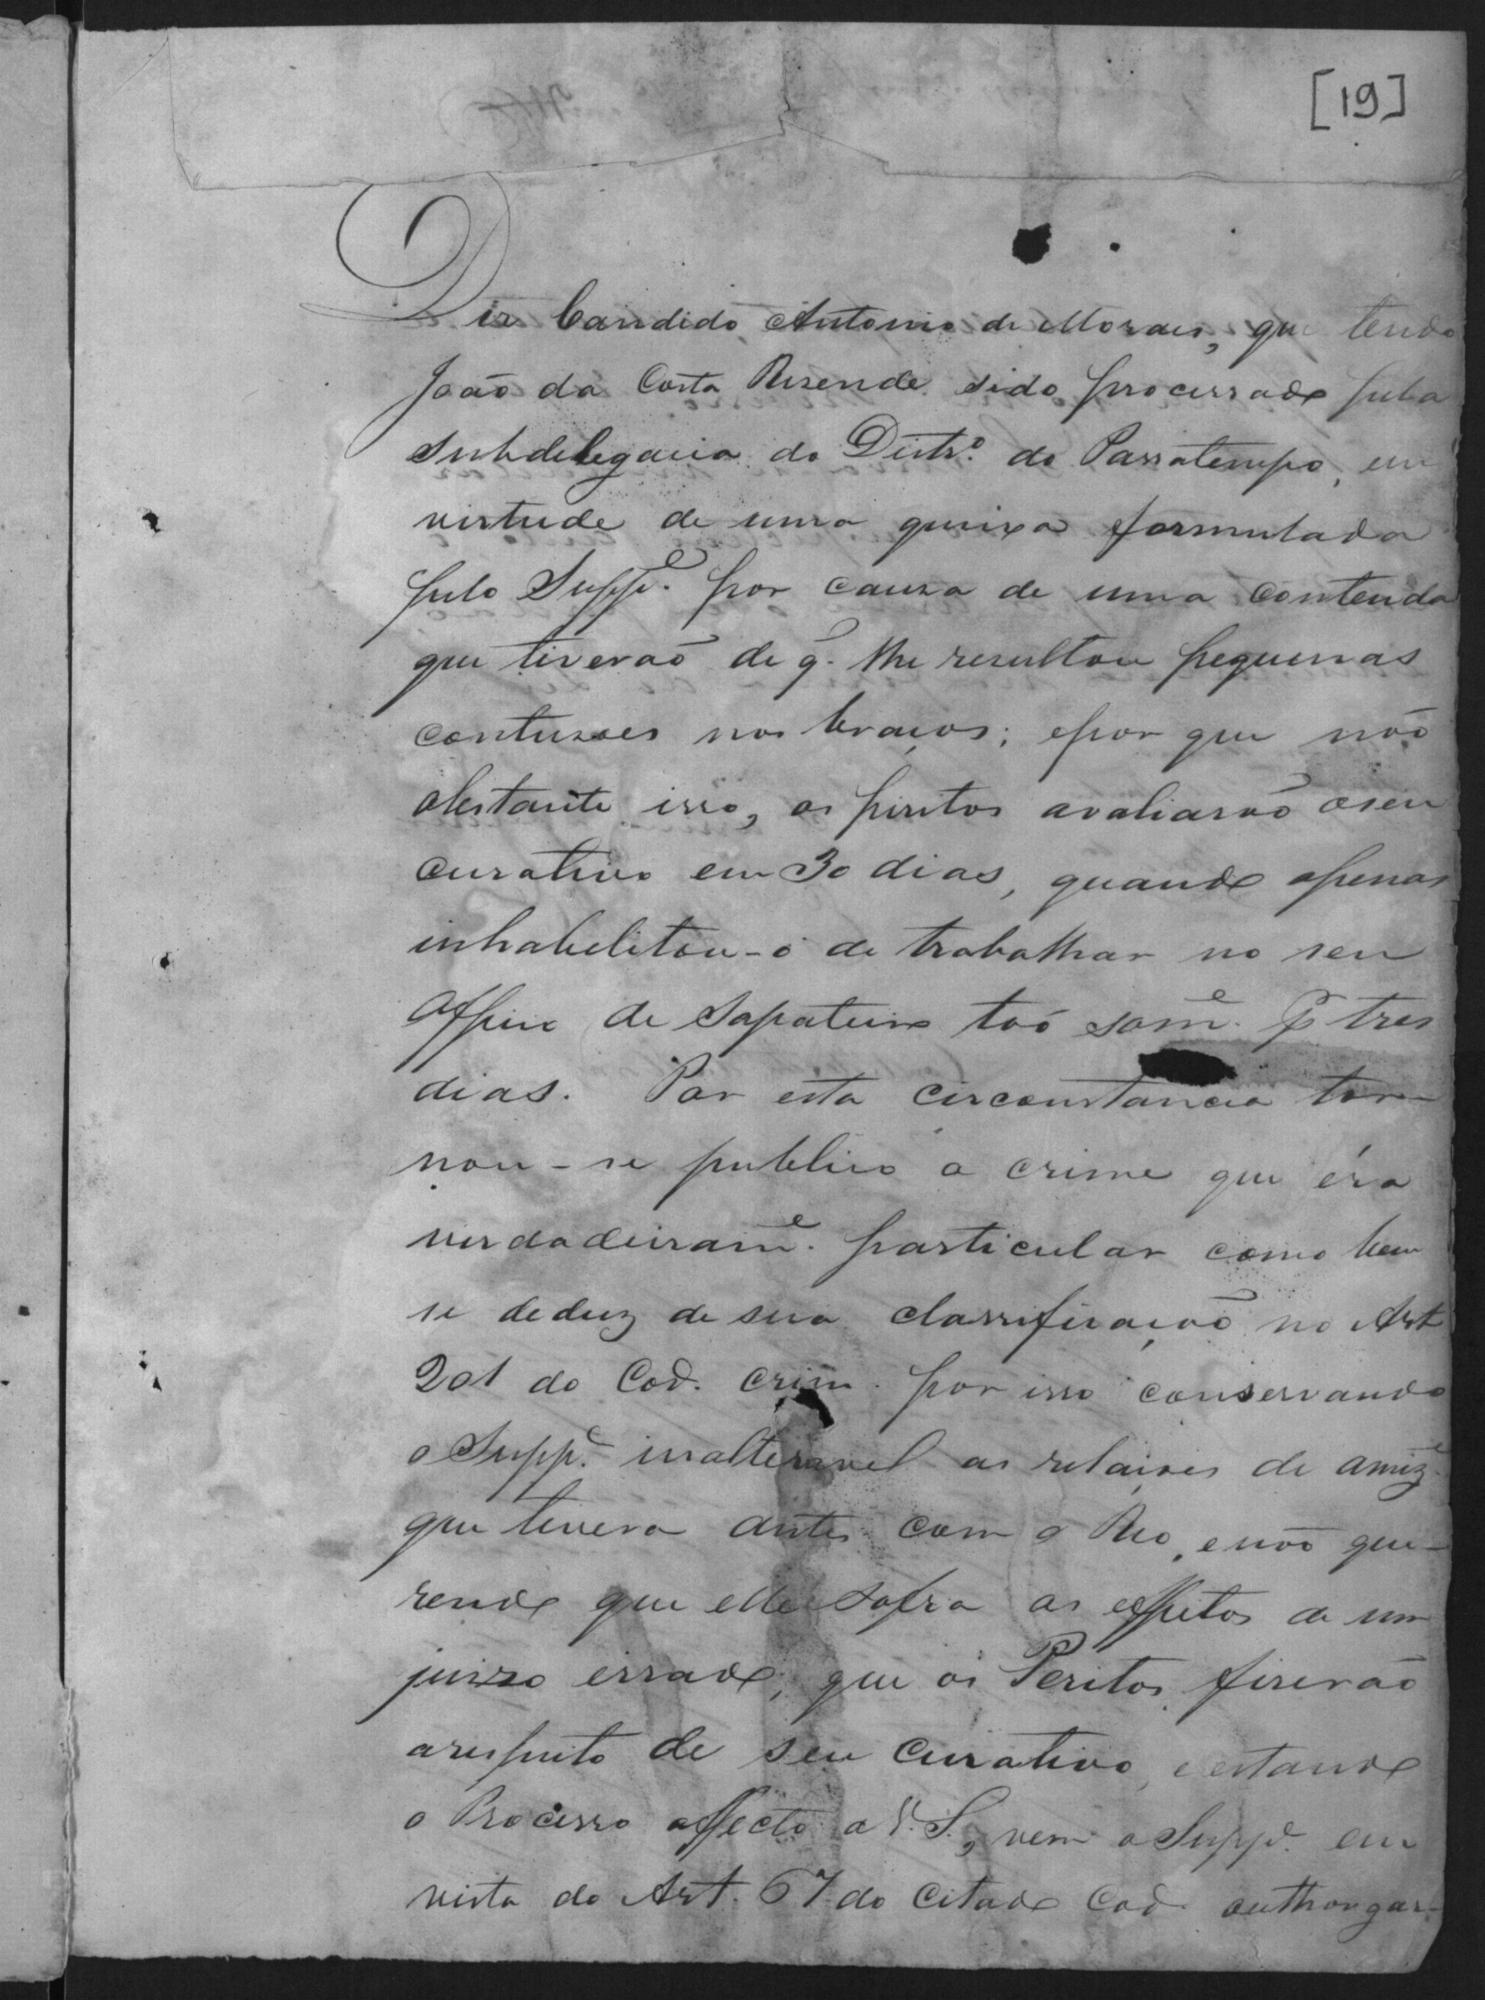 [19]
Diz Candido Antonio de Moraes, que tendo
João da Costa Resende sido processado pela
Subdelegacia do Distr.º do Passatempo, em
virtude de uma queixa formulada
pelo Supp.e por causa de uma contenda
que tiverão de q. lhe resultou pequenas
contusoes nos braços; epor que não
obstante isso, os peritos avaliarão oseu
curativo em 30 dias, quando apenas
inhabelitou-o de trabalhar no seu
Officio de Sapateiro tão som.e p tres
dias. Por esta circonstancia tor-
nou-se publico o crime que éra
verdadeiram.e particular como bem
se deduz de sua classificação no Art
201 do Cod. Crim. por isso conservando
o Supp.e inalteravel as relaçoes de amiz.e
que tivera antes com o Reo, enão que-
rendo que elle sofra os effeitos de um
juizo errado, que os Peritos fiserão
arespeito de seu curativo, eestando
o Processo affecto a V. S., vem o Supp.e em
vista do Art. 67 do Citado Cod. outhorgar-